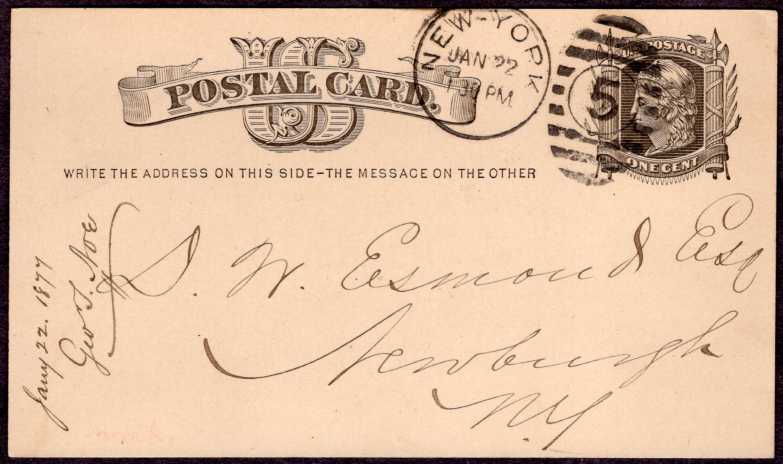 US
POSTAL CARD.
NEW-YORK
JAN 22
1 30 PM
5
U.S. POSTAGE
ONE CENT
WRITE THE ADDRESS ON THIS SIDE-THE MESSAGE ON THE OTHER
S. W. Esmond Esq
Newburgh
N.Y
Jany 22. 1877
Geo S. Noe